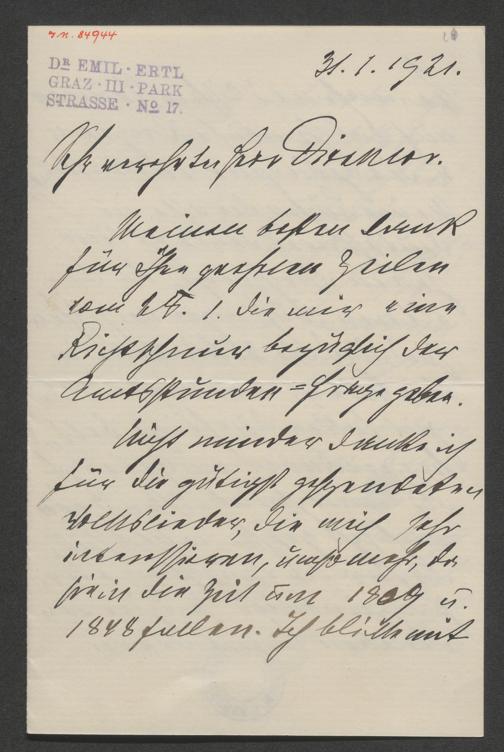 I.N. 84944
DR EMIL · ERTL
GRAZ · III · PARK
STRASSE · No 17.
31. 1. 1921.
Sehr verehrter Herr Direktor.
Meinen besten Dank
für Ihre geehrten Zeilen
vom 25. 1. die mir eine
Richtschnur bezüglich der
Amtsstunden=Frage geben.
Nicht minder danke ich
für die gütigst gespendeten
Volkslieder, die mich sehr
interessieren, umso mehr, da
sie in die Zeit um 1809 u.
1848 fallen. Ich blicke mit